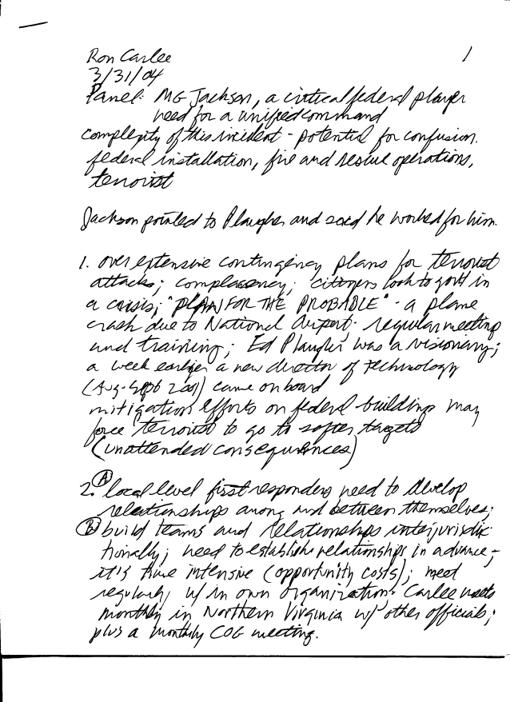 1
Ron Carlee
3/31/04
Panel: MG Jackson, a critical federal player
need for a unified command
complexity of this incident - potential for confusion.
federal installation, fire and rescue operations,
terrorist
Jackson pointed to Plaugher and said he worked for him.
1. over extensive contingency plans for terrorist
attacks; complacency; citizens look to gov't in
a crisis; "PLAN FOR THE PROBABLE" - a plane
crash due to National Airport. regular meeting
and training; Ed Plaugher was a visionary;
a week earlier a new director of technology
(Aug-Sept 2001) came on board
mitigation efforts on federal buildings may
force terrorist to go to softer targets
(unattended consequences)
2. (A) local level first responders need to develop
relationships among and between themselves;
(B) build teams and relationships interjurisdic-
tionally; need to establish relationships in advance;
it's time intensive (opportunity costs); meet
regularly w/in own organization. Carlee meets
monthly in Northern Virginia w/ other officials;
plus a monthly COG meeting.